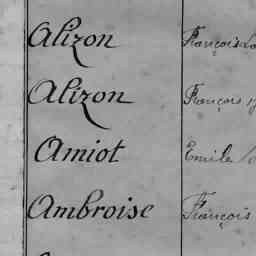 Alizon François
Alizon François
Amiot Emile
Ambroise François